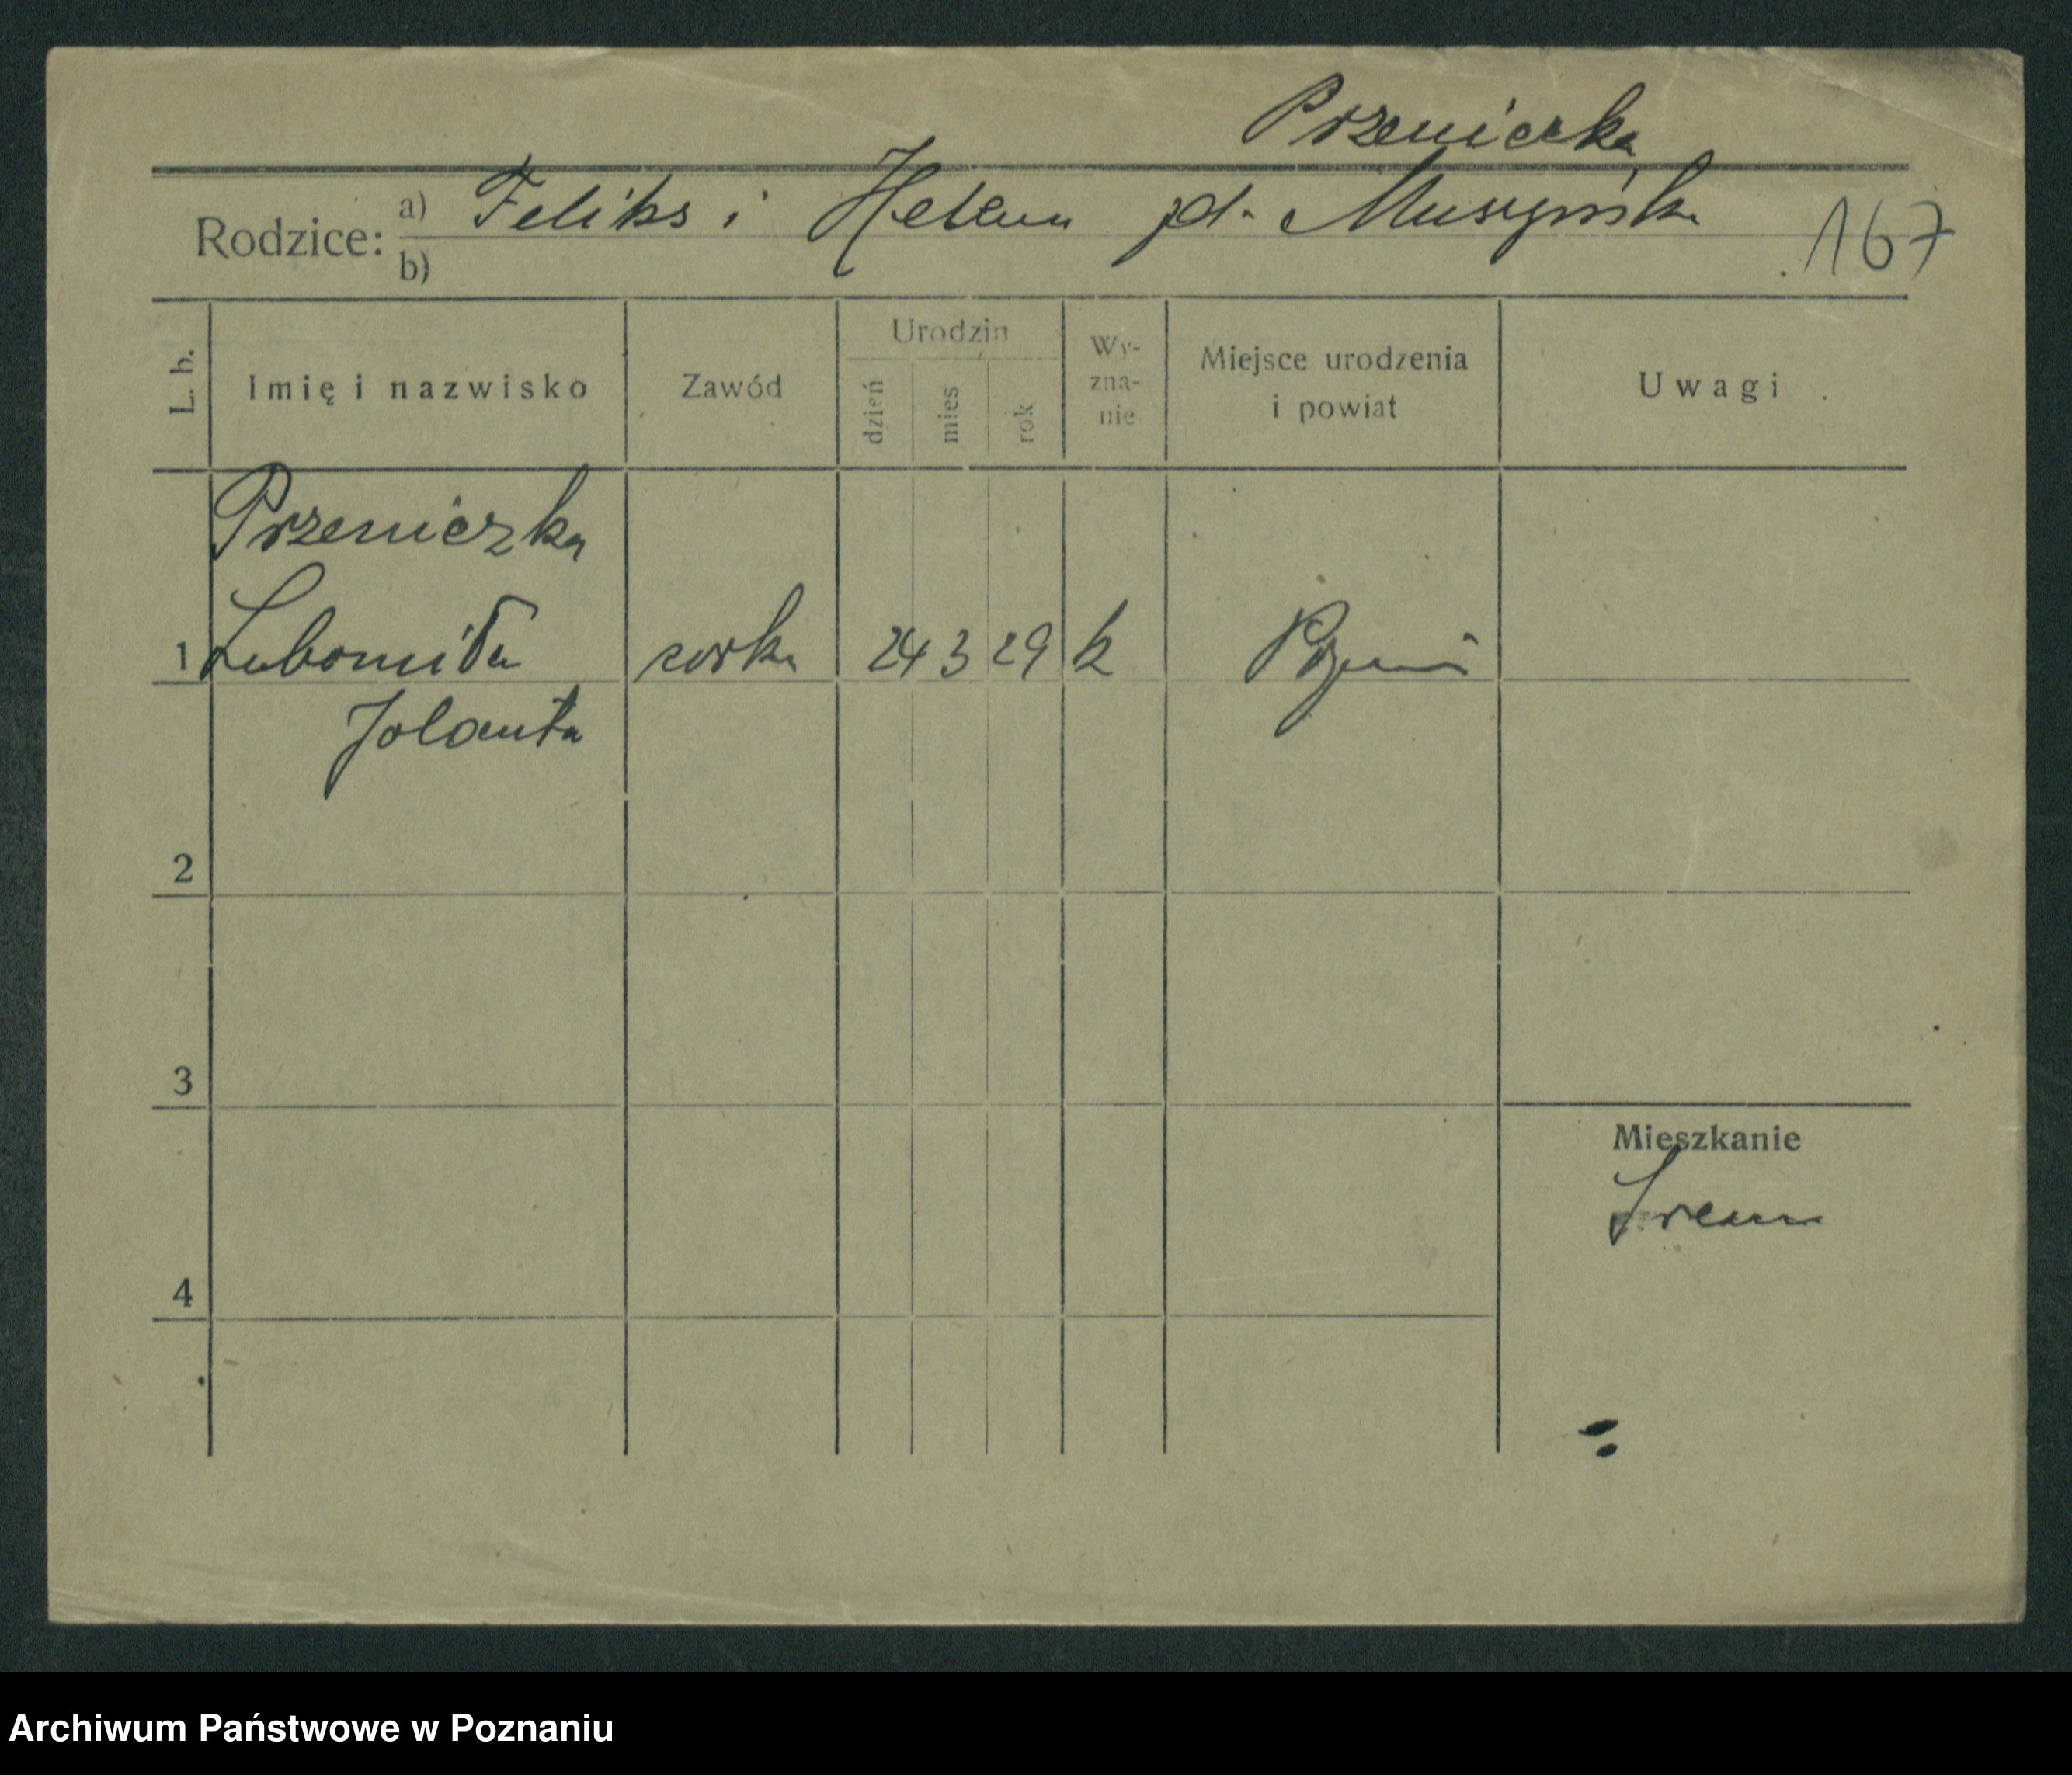 Przeniczka
Rodzice: a) Feliks i Helena zd. Muszyńska
b)
167
L. b. Imię i nazwisko Zawód Urodzin dzień mies rok Wy-zna-nie Miejsce urodzenia i powiat Uwagi
Przeniczka
1 Lubomiła corka 24 3 29 k Poznań
Jolanta
2
3
Mieszkanie
Srem
4
Archiwum Państwowe w Poznaniu